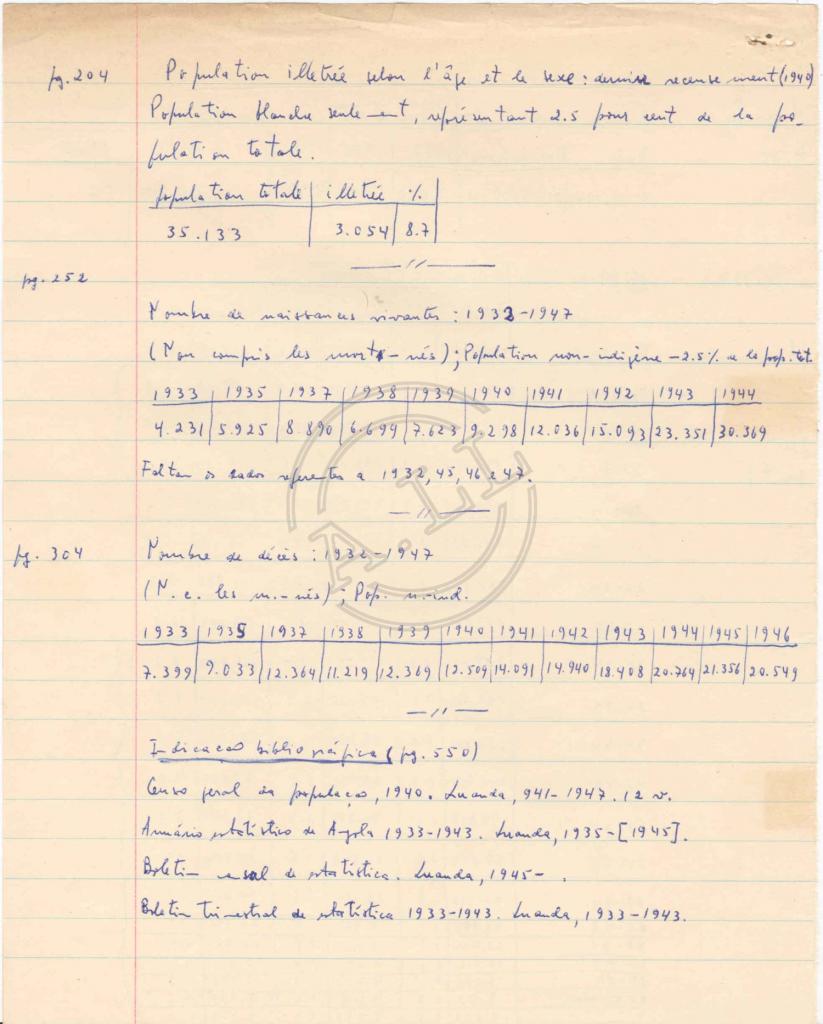 pg. 204 Population illetrée selon l'âge et le sexe: dernier recensement (1940)
Population blanche seulement, représentant 2.5 pour cent de la po-
pulation totale.
population totale | illetrée | %
35.133 | 3.054 | 8.7
—//—
pg. 252
Nombre de naissances vivantes: 1932-1947
(Non compris les mort-nés); Population non-indigène - 2.5% de la pop. tot.
1933 | 1935 | 1937 | 1938 | 1939 | 1940 | 1941 | 1942 | 1943 | 1944
4.231 | 5.925 | 8.890 | 6.699 | 7.623 | 9.298 | 12.036 | 15.093 | 23.351 | 30.369
Faltam os dados referentes a 1932, 45, 46 e 47.
—//—
pg. 304 Nombre de décès: 1932-1947
(N. c. les m.-nés); Pop. n.-ind.
1933 | 1935 | 1937 | 1938 | 1939 | 1940 | 1941 | 1942 | 1943 | 1944 | 1945 | 1946
7.399 | 9.033 | 12.364 | 11.219 | 12.369 | 12.509 | 14.091 | 14.940 | 18.408 | 20.764 | 21.356 | 20.549
—//—
Indicacao bibliográfica (pg. 550)
Censo geral da populaçao, 1940. Luanda, 941-1947. 12 v.
Anuário estatístico de Angola 1933-1943. Luanda, 1935-[1945].
Boletim mensal de estatística. Luanda, 1945- .
Boletim trimestral de estatística 1933-1943. Luanda, 1933-1943.
A.LL